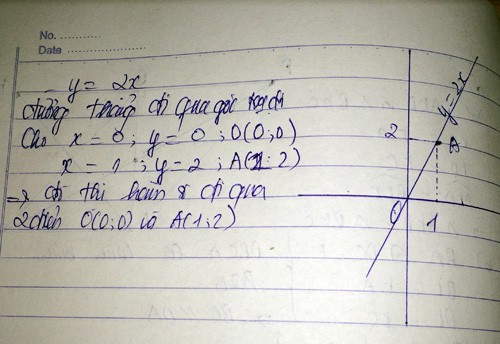 No. ............
Date ........................
y = 2x
đường thẳng đi qua gốc tọa độ
Cho x = 0; y = 0; O(0;0)
x = 1; y = 2; A(1;2)
→ đồ thị hàm số đi qua
2 điểm O(0;0) và A(1;2)
y = 2x
2
A
O
1